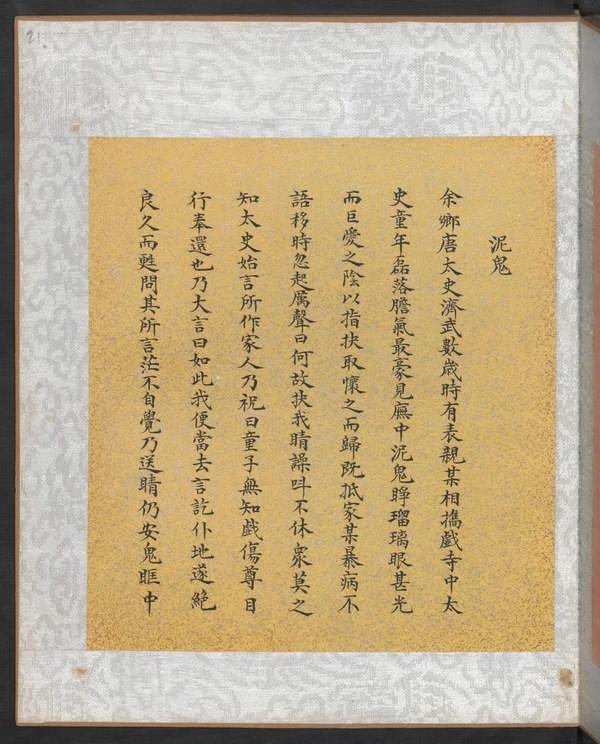 21.
泥鬼
余鄉唐太史濟武數歲時有表親某相攜戲寺中太
史童年磊落膽氣最豪見廡中泥鬼睜瑠璃眼甚光
而巨愛之陰以指抉取懷之而歸既抵家某暴病不
語移時忽起厲聲曰何故抉我睛譟呌不休衆莫之
知太史始言所作家人乃祝曰童子無知戲傷尊目
行奉還也乃大言曰如此我便當去言訖仆地遂絕
良久而甦問其所言茫不自覺乃送睛仍安鬼眶中